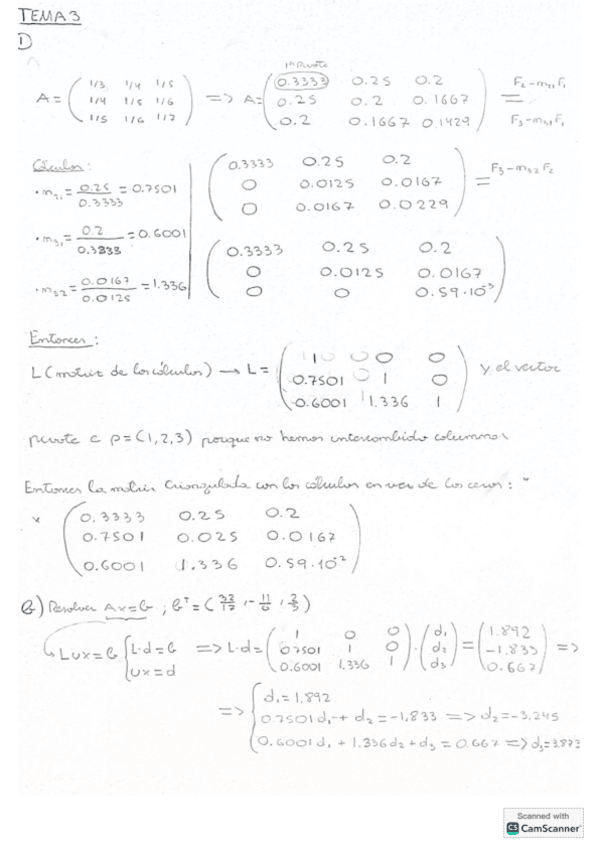 TEMA 3
1)
1er Pivote
A = ( 1/3 1/4 1/5 => A = ( 0.3333 0.25 0.2 F2 - m21 F1
1/4 1/5 1/6 0.25 0.2 0.1667 =
1/5 1/6 1/7 ) 0.2 0.1667 0.1429 ) F3 - m31 F1
Cálculos:
· m21 = 0.25 / 0.3333 = 0.7501
( 0.3333 0.25 0.2
0 0.0125 0.0167
0 0.0167 0.0229 ) = F3 - m32 F2
· m31 = 0.2 / 0.3333 = 0.6001
· m32 = 0.0167 / 0.0125 = 1.336
( 0.3333 0.25 0.2
0 0.0125 0.0167
0 0 0.59·10⁻³ )
Entonces:
L (matriz de los cálculos) → L = ( 1 0 0
0.7501 1 0
0.6001 1.336 1 ) y el vector
pivote a p = (1,2,3) porque no hemos intercambido columnas
Entonces la matriz triangulada con los cálculos en vez de los ceros: "
( 0.3333 0.25 0.2
0.7501 0.025 0.0167
0.6001 1.336 0.59·10⁻² )
b) Resolver Ax=b ; bᵀ = (
→ Lux=b { L·d=b
Ux=d
=> L·d = ( 1 0 0
0.7501 1 0
0.6001 1.336 1 ) · ( d1
d2
d3 ) = ( 1.892
-1.833
0.667 ) =>
=> { d1 = 1.892
0.7501 d1 + d2 = -1,833 => d2 = -3.245
0.6001 d1 + 1.336 d2 + d3 = 0.667 => d3 = 3.873
Scanned with
CS CamScanner